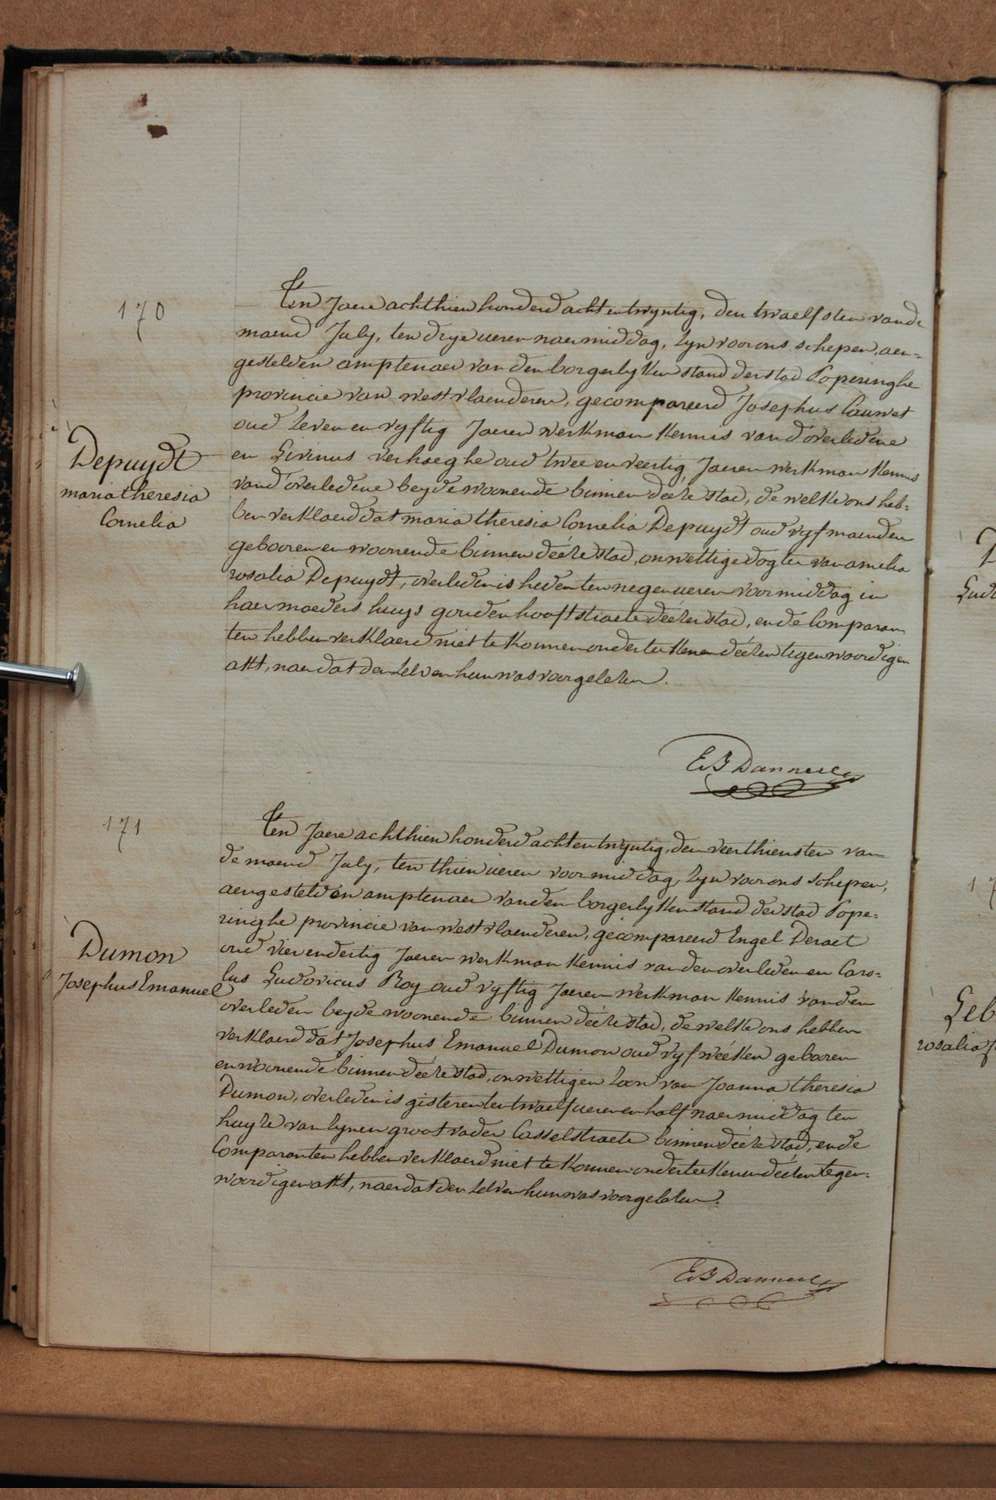 170
Ten Jaere achthien honderd achtentwyntig, den twaelfsten vande
maend July, ten drye ueren naermiddag, zyn voor ons schepen, aen-
gestelden amptenaer van den borgerlyken stand der stad Poperinghe
provincie van westvlaenderen, gecompareerd Josephus Cauwet
oud zeven en vyftig Jaeren werkman kennis van d'overledene
en Livinus verhaeghe oud twee en veertig Jaeren werkman kennis
vand'overledene beyde woonende binnen deéze stad, de welke ons heb-
ben verklaerd dat maria theresia Cornelia Depuydt oud vyf maenden
gebooren en woonende binnen deéze stad, onwettige dogter van amelia
rosalia Depuydt, overleden is heden ten negen ueren voormiddag in
haer moeders huys gouden hooft straete deézer stad, en de Comparan
ten hebben verklaerd niet te konnen onderteekenen deézen tegenwoordigen
akt, naer dat den zelven hun was voorgelezen.
Depuydt
maria theresia
Cornelia
E B Danneel
171
Ten Jaere achthien honderd achtentwyntig, den veerthiensten van
de maend July, ten thien ueren voormiddag, zyn voor ons schepen,
aengestelden amptenaer van den borgerlyken stand der stad Pope-
ringhe provincie van westvlaenderen, gecompareerd Engel Deraet
oud vier en dertig Jaeren werkman kennis van den overleden en Caro-
lus Ludovicus Roy oud vyftig Jaeren werkman kennis van den
overleden beyde woonende binnen deéze stad, de welke ons hebben
verklaerd dat Josephus Emanuel Dumon oud vyf weéken gebooren
en woonende binnen deéze stad, onwettigen zoon van Joanna theresia
Dumon, overleden is gisteren ten twaelf ueren en half naermiddag ten
huyze van zynen grootvader Casselstraete binnen deéze stad, en de
Comparanten hebben verklaerd niet te konnen onderteekenen deézen tegen-
woordigen akt, naer dat den zelven hun was voorgelezen.
Dumon
Josephus Emanuel
E B Danneel
Leb
rosalia